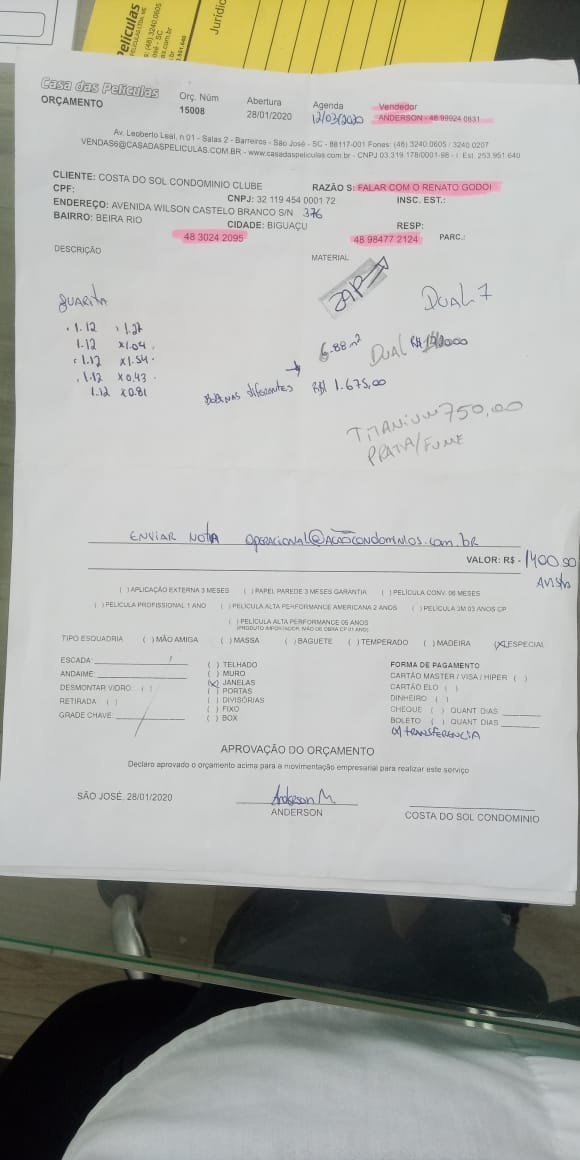 Películas
Jurídic
Casa das Películas
ORÇAMENTO
Orç. Núm
15008
Abertura
28/01/2020
Agenda
12/03/2020
Vendedor
ANDERSON - 48 99924 0831
Av. Leoberto Leal, n.01 - Salas 2 - Barreiros - São José - SC - 88117-001 Fones: (48) 3240.0605 / 3240.0207
VENDAS6@CASADASPELICULAS.COM.BR - www.casadaspeliculas.com.br - CNPJ 03.319.178/0001-98 - I. Est. 253.951.640
CLIENTE: COSTA DO SOL CONDOMINIO CLUBE
RAZÃO S: FALAR COM O RENATO GODOI
CPF:
CNPJ: 32 119 454 0001 72
INSC. EST.:
ENDEREÇO: AVENIDA WILSON CASTELO BRANCO S/N 376
BAIRRO: BEIRA RIO
CIDADE: BIGUAÇU
RESP:
48 3024 2095
48 98477 2124
PARC.:
DESCRIÇÃO
MATERIAL
ZAP
DUAL 7
GUARITA
1.12
1.12 x1.04
1.12 x1.54
1.12 x0.43
1.12 x0.81
6.88 m²
DUAL
diferentes R$ 1.675,00
TITANIUM 750,00
PRATA/FUME
ENVIAR NOTA OPERACIONAL@ACAOCONDOMINIOS.COM.BR
VALOR: R$ - 1400,00
( ) APLICAÇÃO EXTERNA 3 MESES ( ) PAPEL PAREDE 3 MESES GARANTIA ( ) PELÍCULA CONV. 06 MESES
( ) PELICULA PROFISSIONAL 1 ANO ( ) PELICULA ALTA PERFORMANCE AMERICANA 2 ANOS ( ) PELICULA 3M 03 ANOS CP
( ) PELÍCULA ALTA PERFORMANCE 05 ANOS
TIPO ESQUADRIA ( ) MÃO AMIGA ( ) MASSA ( ) BAGUETE ( ) TEMPERADO ( ) MADEIRA (X) ESPECIAL
ESCADA:
ANDAIME:
DESMONTAR VIDRO: ( )
RETIRADA ( )
GRADE CHAVE:
( ) TELHADO
( ) MURO
(X) JANELAS
( ) PORTAS
( ) DIVISÓRIAS
( ) FIXO
( ) BOX
FORMA DE PAGAMENTO
CARTÃO MASTER / VISA / HIPER ( )
CARTÃO ELO ( )
DINHEIRO ( )
CHEQUE ( ) QUANT. DIAS
BOLETO ( ) QUANT DIAS
(X) TRANSFERENCIA
APROVAÇÃO DO ORÇAMENTO
Declaro aprovado o orçamento acima para a movimentação empresarial para realizar este serviço
SÃO JOSÉ, 28/01/2020
Anderson M.
ANDERSON
COSTA DO SOL CONDOMINIO